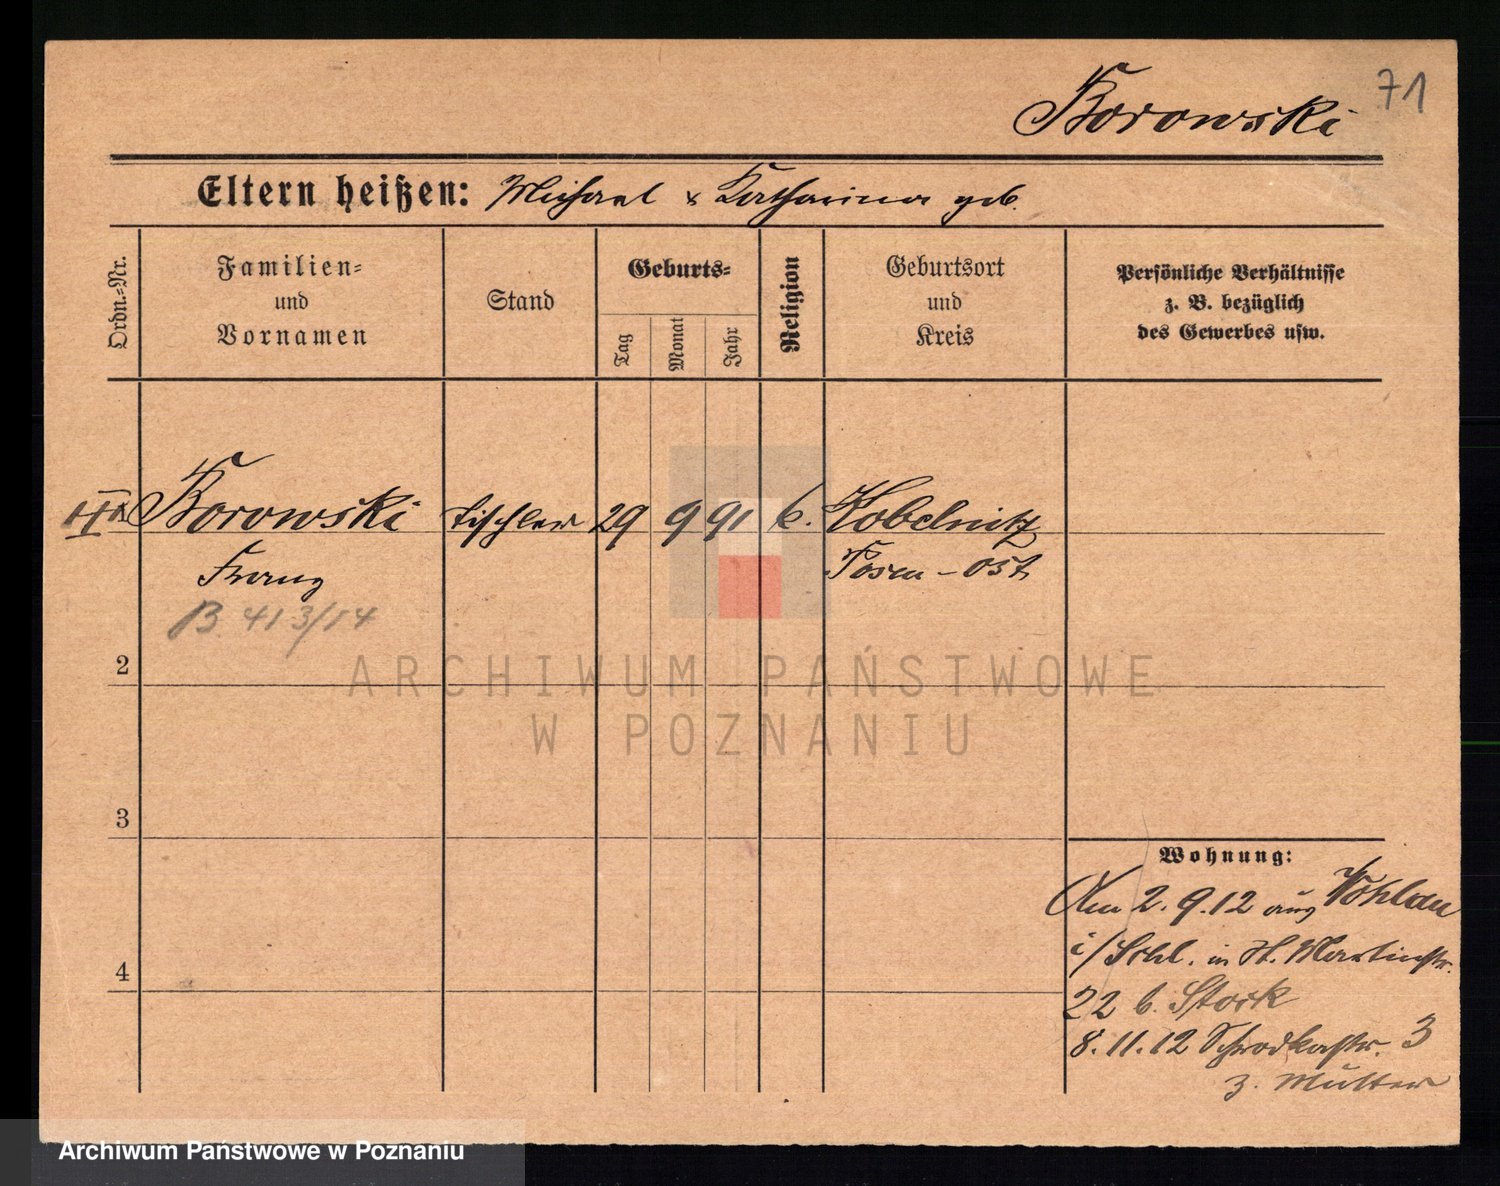 71
Borowski
Eltern heißen: Michael & Katharina geb.
Ordn.=Nr.
Familien=
und
Vornamen
Stand
Geburts=
Tag
Monat
Jahr
Religion
Geburtsort
und
Kreis
Persönliche Verhältnisse
z. B. bezüglich
des Gewerbes usw.
Borowski Tischler 29 9 91 k. Kobelnitz
Franz Posen-Ost
B. 413/14
2
3
4
Wohnung:
Am 2.9.12 aus Wohlau
i/Schl. in St. Martinstr.
22 b. Stock
8.11.12 Schrodkastr. 3
z. Mutter
ARCHIWUM PAŃSTWOWE
W POZNANIU
Archiwum Państwowe w Poznaniu